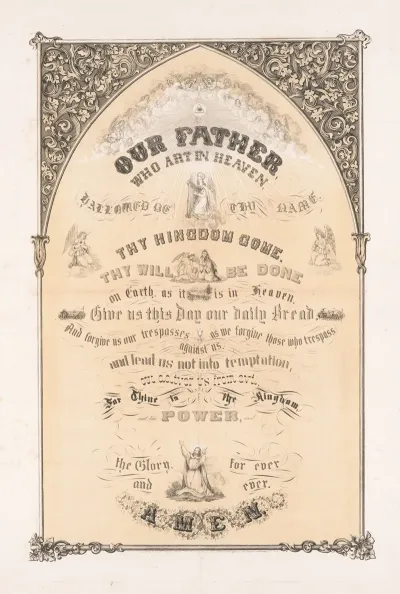 OUR FATHER
WHO ART IN HEAVEN,
HALLOWED BE THY NAME.
THY KINGDOM COME.
THY WILL BE DONE
on Earth as it is in Heaven.
Give us this Day our daily Bread,
And forgive us our trespasses as we forgive those who trespass
against us.
and lead us not into temptation,
For Thine is the Kingdom
POWER,
the Glory, for ever
and ever.
AMEN.